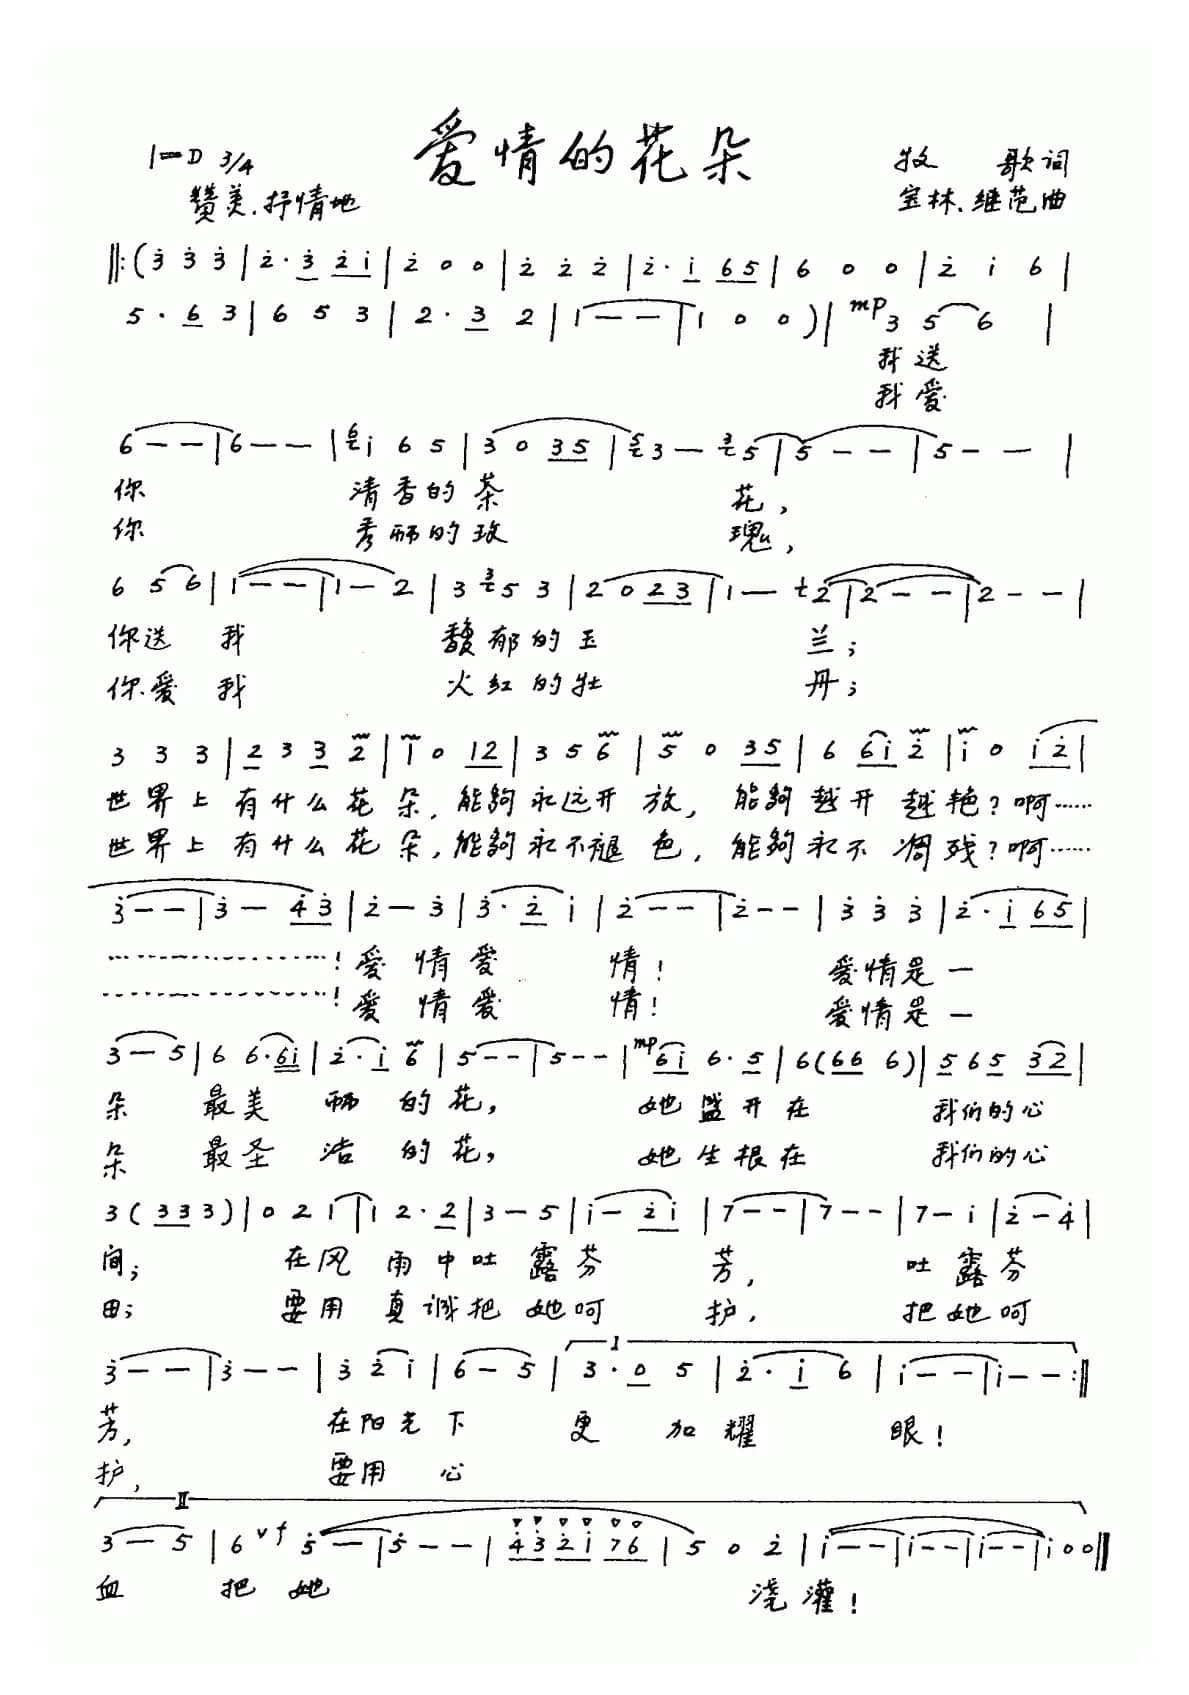 爱情的花朵
1=D 3/4
牧 歌词
赞美.抒情地
宝林、继范曲
‖:(3̇ 3̇ 3̇ | 2̇· 3̇ 2̇ 1̇ | 2̇ 0 0 | 2̇ 2̇ 2̇ | 2̇· 1̇ 6 5 | 6 0 0 | 2̇ 1̇ 6 |
5· 6 3 | 6 5 3 | 2· 3 2 | 1 - - | 1 0 0) | mp 3 5 6 |
我送
我爱
6 - - | 6 - - | 6 1̇ 6 5 | 3 0 3 5 | 5 3 - 3 5 | 5 - - | 5 - - |
你 清香的茶 花,
你 秀丽的玫 瑰,
6 5 6 | 1 - - | 1 - 2 | 3 3 5 3 | 2 0 2 3 | 1 - 1 2 | 2 - - | 2 - - |
你送 我 馥郁的玉 兰;
你爱 我 火红的牡 丹;
3 3 3 | 2 3 3 2 | 1 0 1 2 | 3 5 6 | 5 0 3 5 | 6 6 1̇ 2̇ | 1̇ 0 1̇ 2̇ |
世界上 有什么花 朵,能夠永远开 放, 能夠越开 越艳?啊……
世界上 有什么花 朵,能夠永不褪 色, 能夠永不 凋残?啊……
3̇ - - | 3̇ - 4̇ 3̇ | 2̇ - 3̇ | 3̇· 2̇ 1̇ | 2̇ - - | 2̇ - - | 3̇ 3̇ 3̇ | 2̇· 1̇ 6 5 |
………………! 爱 情 爱 情! 爱情是一
………………! 爱 情 爱 情! 爱情是一
3 - 5 | 6 6· 6 1̇ | 2̇· 1̇ 6 | 5 - - | 5 - - | mp 6 1̇ 6· 5 | 6 (6 6 6) | 5 6 5 3 2 |
朵 最美 丽 的花, 她盛开在 我们的心
朵 最圣 洁 的花, 她生根在 我们的心
3 (3 3 3) | 0 2 1 | 1 2· 2 | 3 - 5 | 1̇ - 2̇ 1̇ | 7 - - | 7 - - | 7 - 1̇ | 2̇ - 4̇ |
间; 在风 雨中吐 露芬 芳, 吐露芬
田; 要用 真诚把 她呵 护, 把她呵
3̇ - - | 3̇ - - | 3̇ 2̇ 1̇ | 6 - 5 | I 3· 0 5 | 2̇· 1̇ 6 | 1̇ - - | 1̇ - - :‖
芳, 在阳光下 更 加耀 眼!
护, 要用 心
II
3 - 5 | 6 ∨ f 5̇ - | 5̇ - - | 4̇ 3̇ 2̇ 1̇ 7 6 | 5 0 2̇ | 1̇ - - | 1̇ - - | 1̇ - - | 1̇ 0 0 ‖
血 把 她 浇 灌!